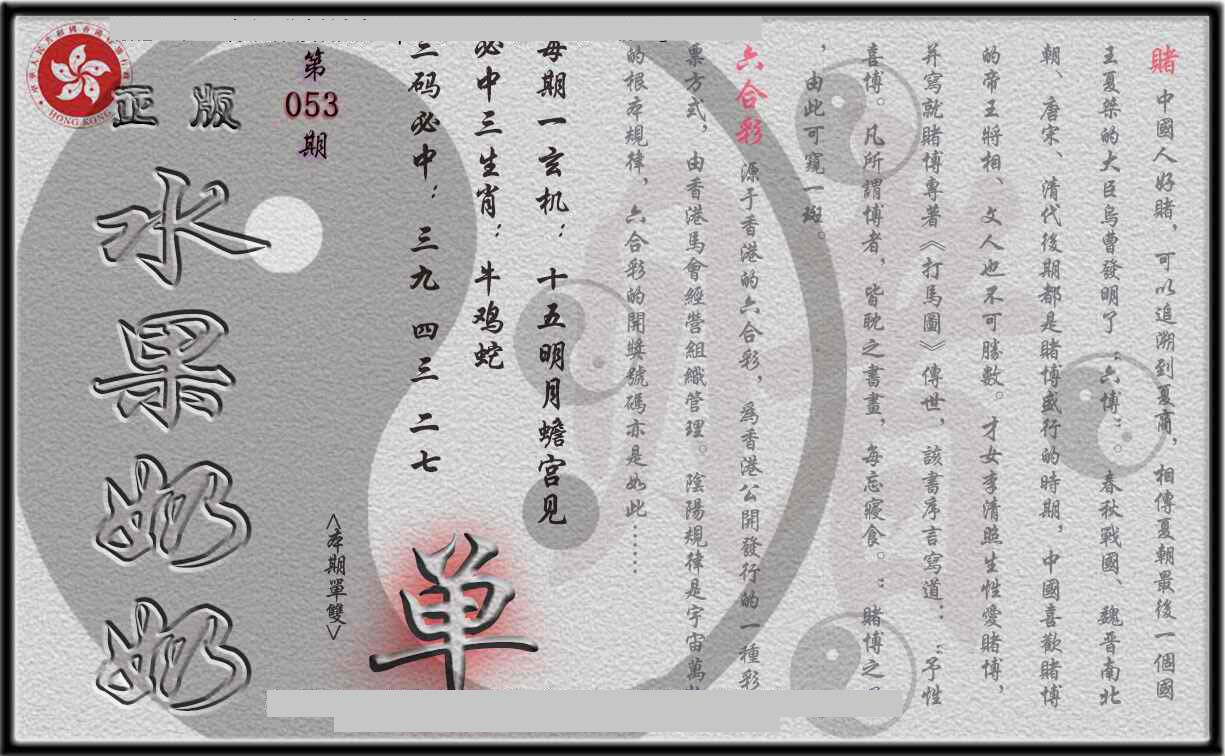 賭 中國人好賭，可以追溯到夏商，相傳夏朝最後一個國
王夏桀的大臣烏曹發明了“六博”。春秋戰國、魏晋南北
朝、唐宋、清代後期都是賭博盛行的時期，中國喜歡賭博
的帝王將相、文人也不可勝數。才女李清照生性愛賭博，
并寫就賭博專著《打馬圖》傳世，該書序言寫道：“予性
喜博。凡所謂博者，皆耽之書畫，每忘寢食。”賭博之
，由此可窺一斑。
六合彩 源于香港的六合彩，為香港公開發行的一種彩
票方式，由香港馬會經營組織管理。陰陽規律是宇宙萬
的根本規律，六合彩的開獎號碼亦是如此……
每期一玄机：十五明月蟾宫见
必中三生肖：牛鸡蛇
三码必中：三九 四三 二七
第
053
期
<本期單雙>
单
正版
水果奶奶
HONG KONG